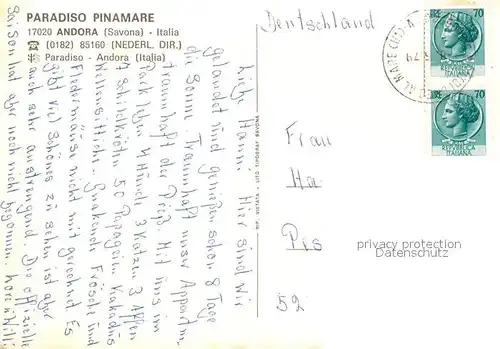 PARADISO PINAMARE
17020 ANDORA (Savona) - Italia
(0182) 85160 (NEDERL. DIR.)
Paradiso - Andora (Italia)
Deutschland
Liebe Hanni! Hier sind wir
gelandet und genießen schon 8 Tage
die Sonne. Traumhaft unser Appartm.
traumhaft der Preis. Mit uns im
Park leben 4 Hunde 3 Katzen 3 Affen
4 Schildkröten 50 Papageien Kakadus
Wellensittiche. Quakende Frösche und
Fledermäuse nicht mit gerechnet. Es
gibt viel Schönes zu sehen ist aber
auch sehr anstrengend. Die offizielle
Saison hat aber noch nicht begonnen.
RIP. VIETATA - LITO TIPOGRAF SAVONA
Frau
Ha
Pis
52
70
REPUBBLICA
ITALIANA
70
REPUBBLICA
ITALIANA
privacy protection
Datenschutz